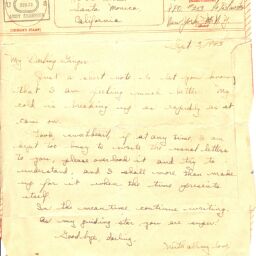 Santa Monica
California
Sept 3, 1943
My Darling
Just a short note to let you know
that I am feeling much better. My
cold is breaking up as rapidly as it
came on.
Look sweetheart, if at any time I am
kept too busy to write the usual letters
to you, please overlook it and try to
understand, and I shall more than make
up for it when the time presents
itself.
In the meantime continue writing.
As my guiding star you are super.
Goodbye, darling.
With all my love